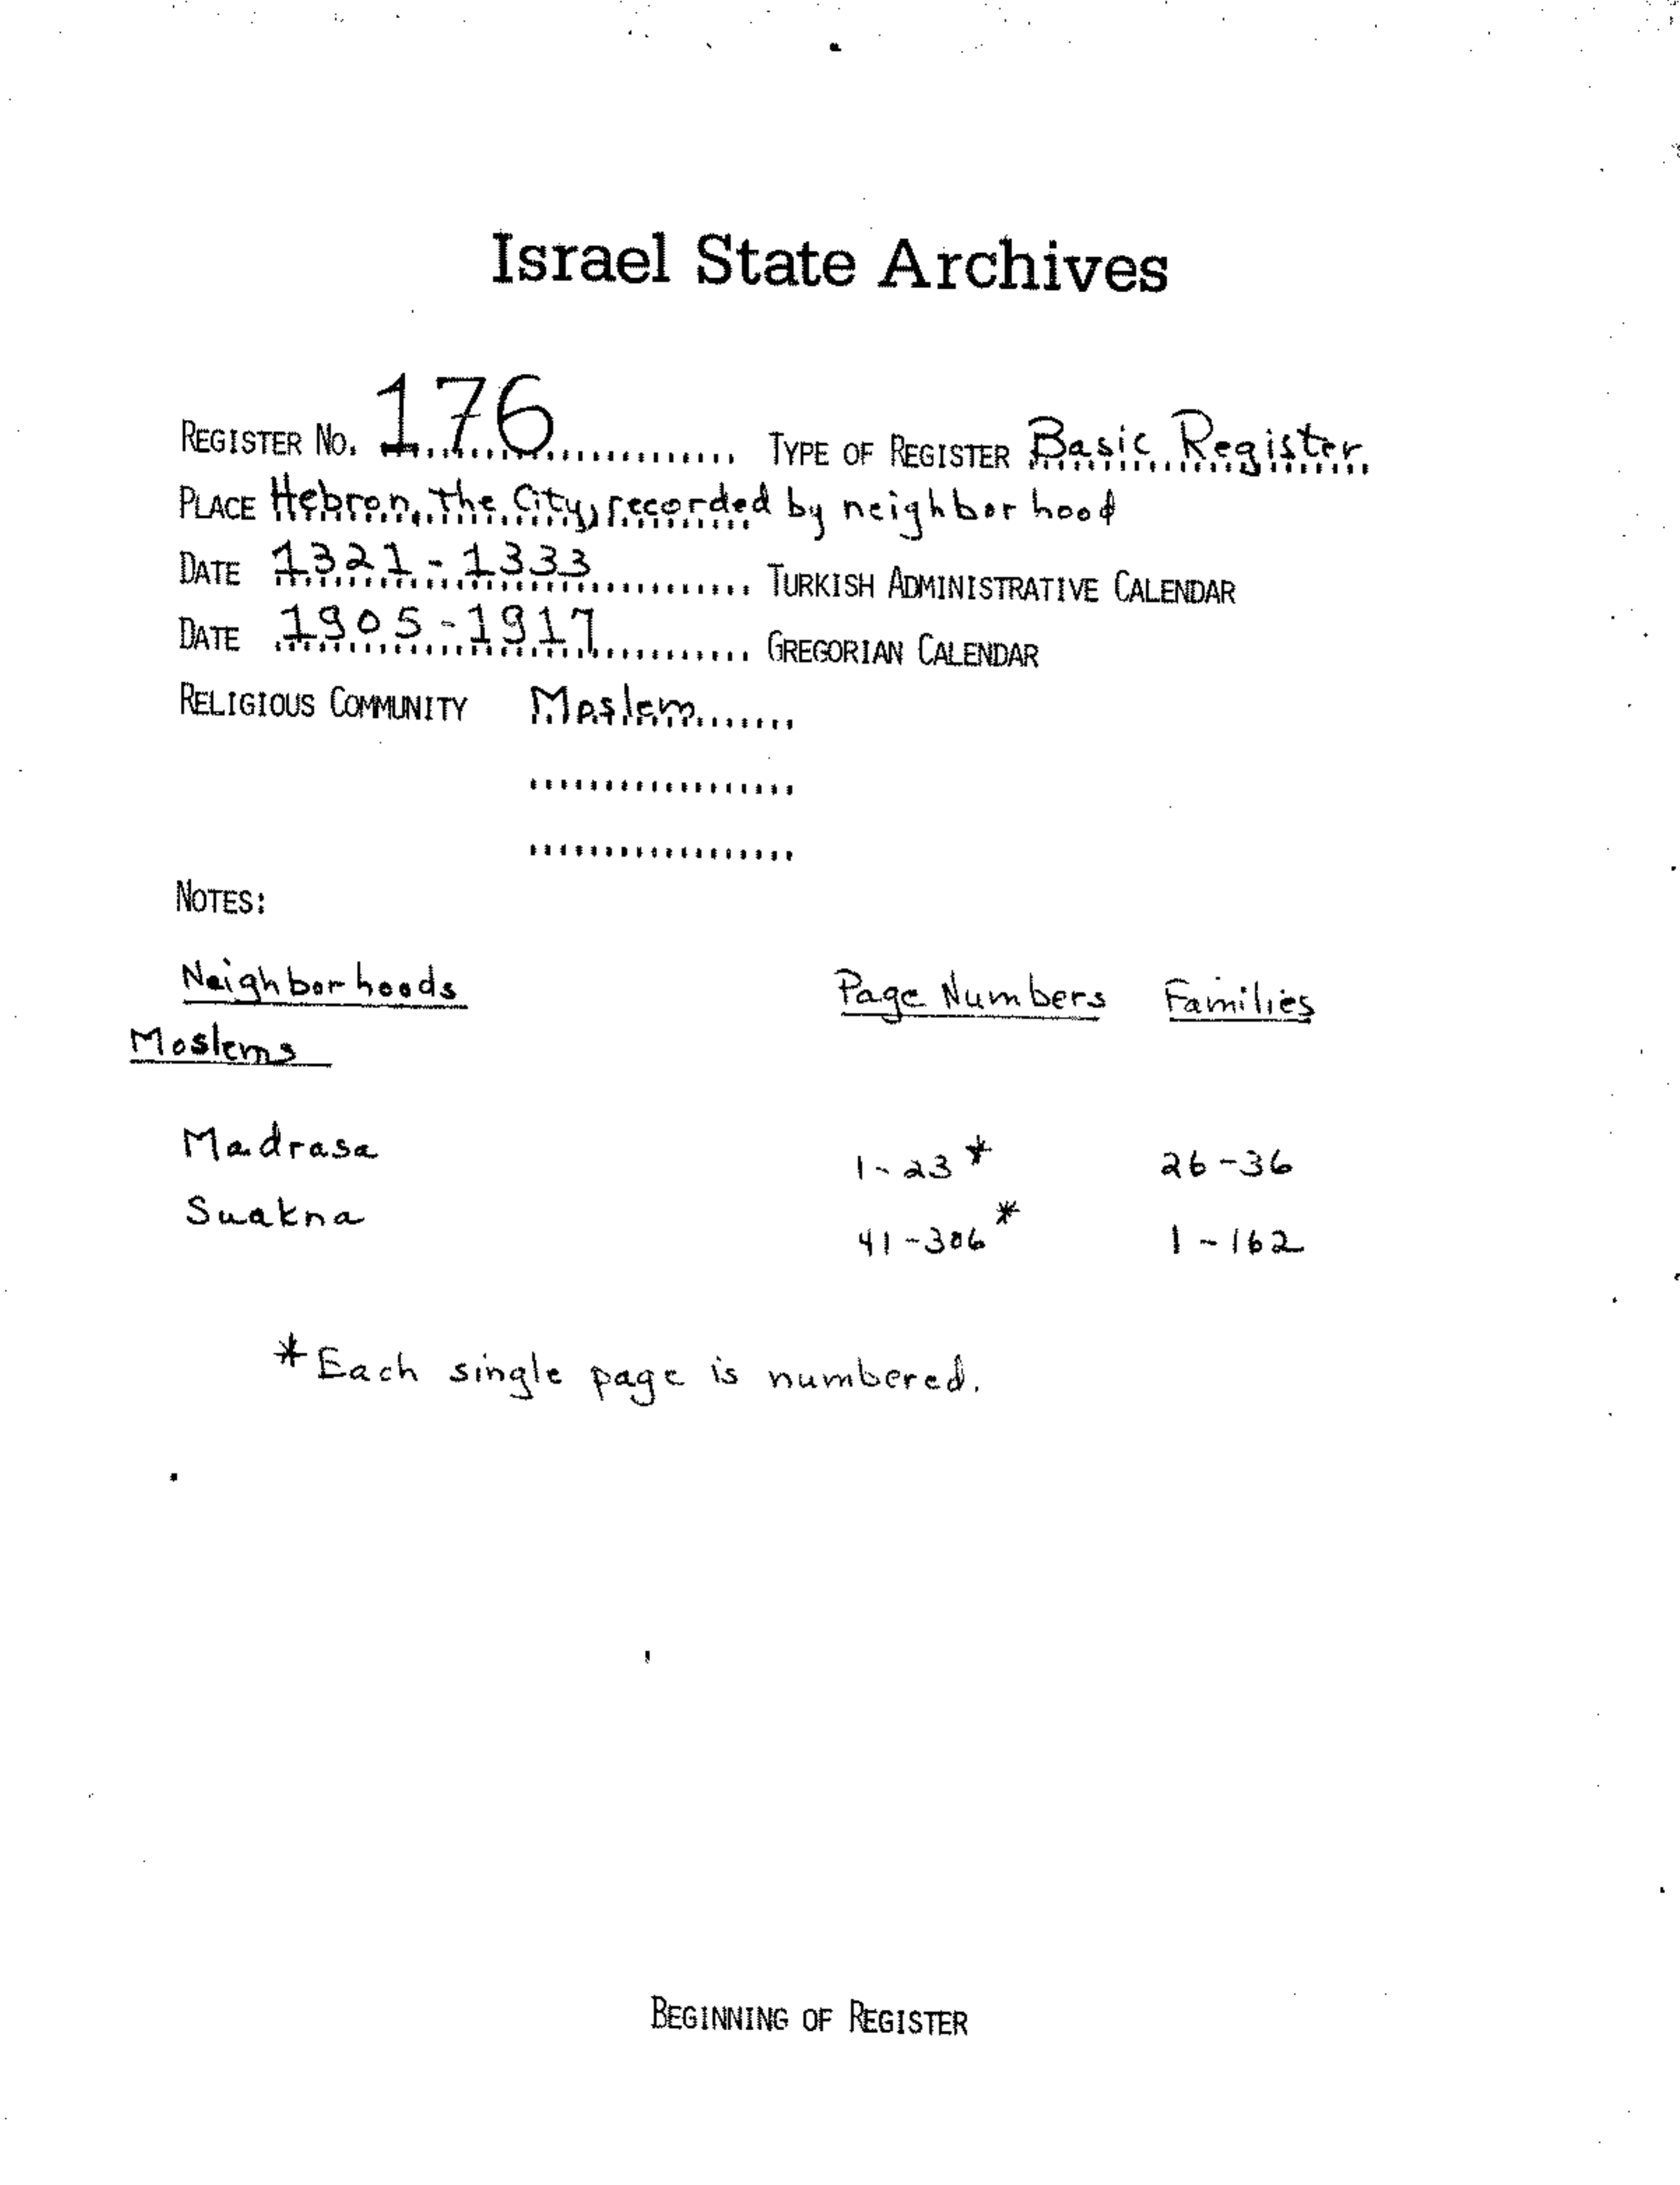 Israel State Archives
REGISTER NO. 176 TYPE OF REGISTER Basic Register
PLACE Hebron, the City, recorded by neighborhood
DATE 1321-1333 TURKISH ADMINISTRATIVE CALENDAR
DATE 1905-1917 GREGORIAN CALENDAR
RELIGIOUS COMMUNITY Moslem
NOTES:
Neighborhoods Page Numbers Families
Moslems
Madrasa 1-23* 26-36
Suakna 41-306* 1-162
*Each single page is numbered.
BEGINNING OF REGISTER